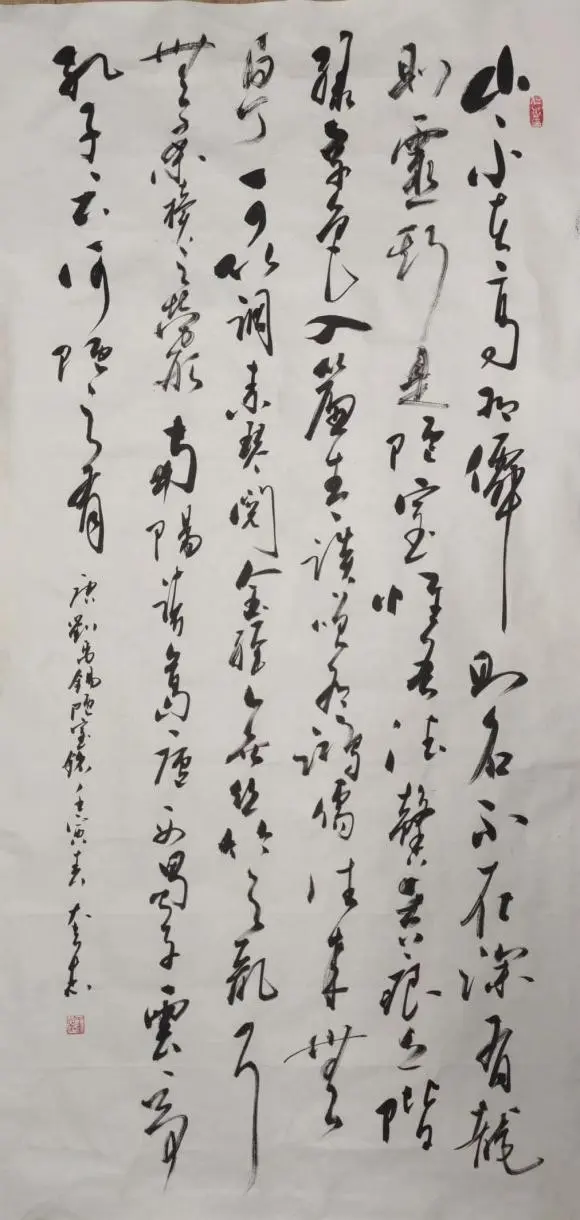 山不在高有僊則名不在深有龍
則靈斯是陋室惟吾德馨苔痕上階
綠草色入簾青談笑有鴻儒往來無
白丁可以調素琴閱金經無絲竹之亂耳
無案牘之勞形南陽諸葛廬西蜀子雲亭
孔子云何陋之有
唐劉禹錫陋室銘壬寅春